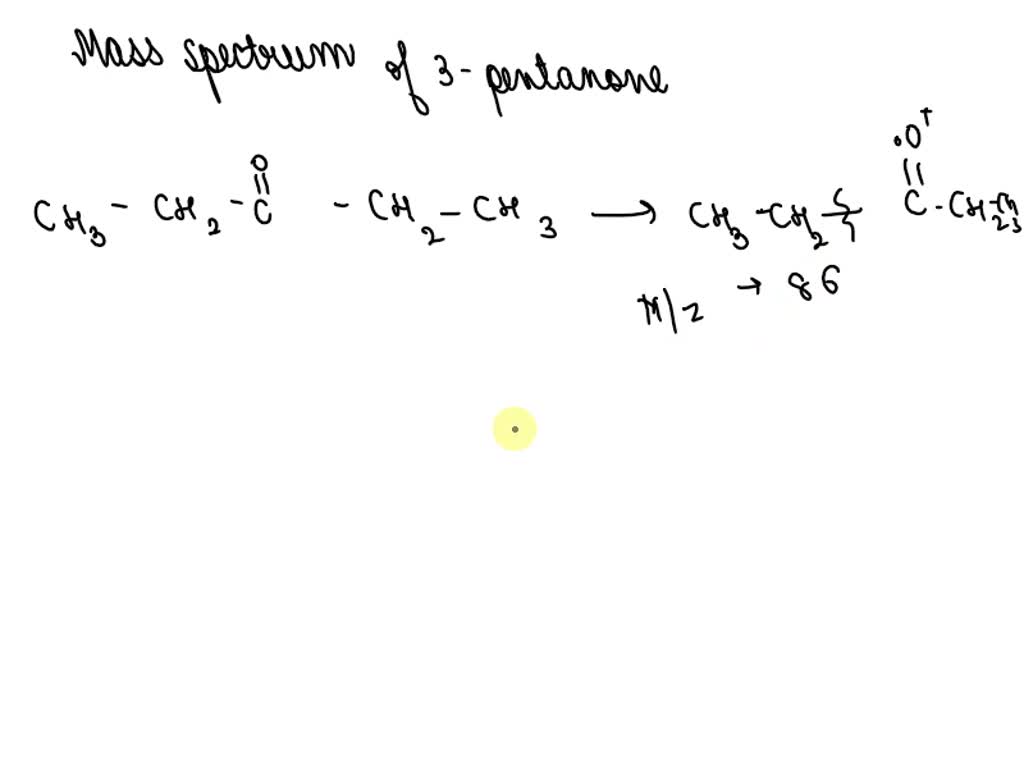 Mass spectrum of 3-pentanone
O ·O⁺
CH₃ - CH₂ - C - CH₂ - CH₃ → CH₃ - CH₂ C - CH₂ - CH₃
M/z → 86